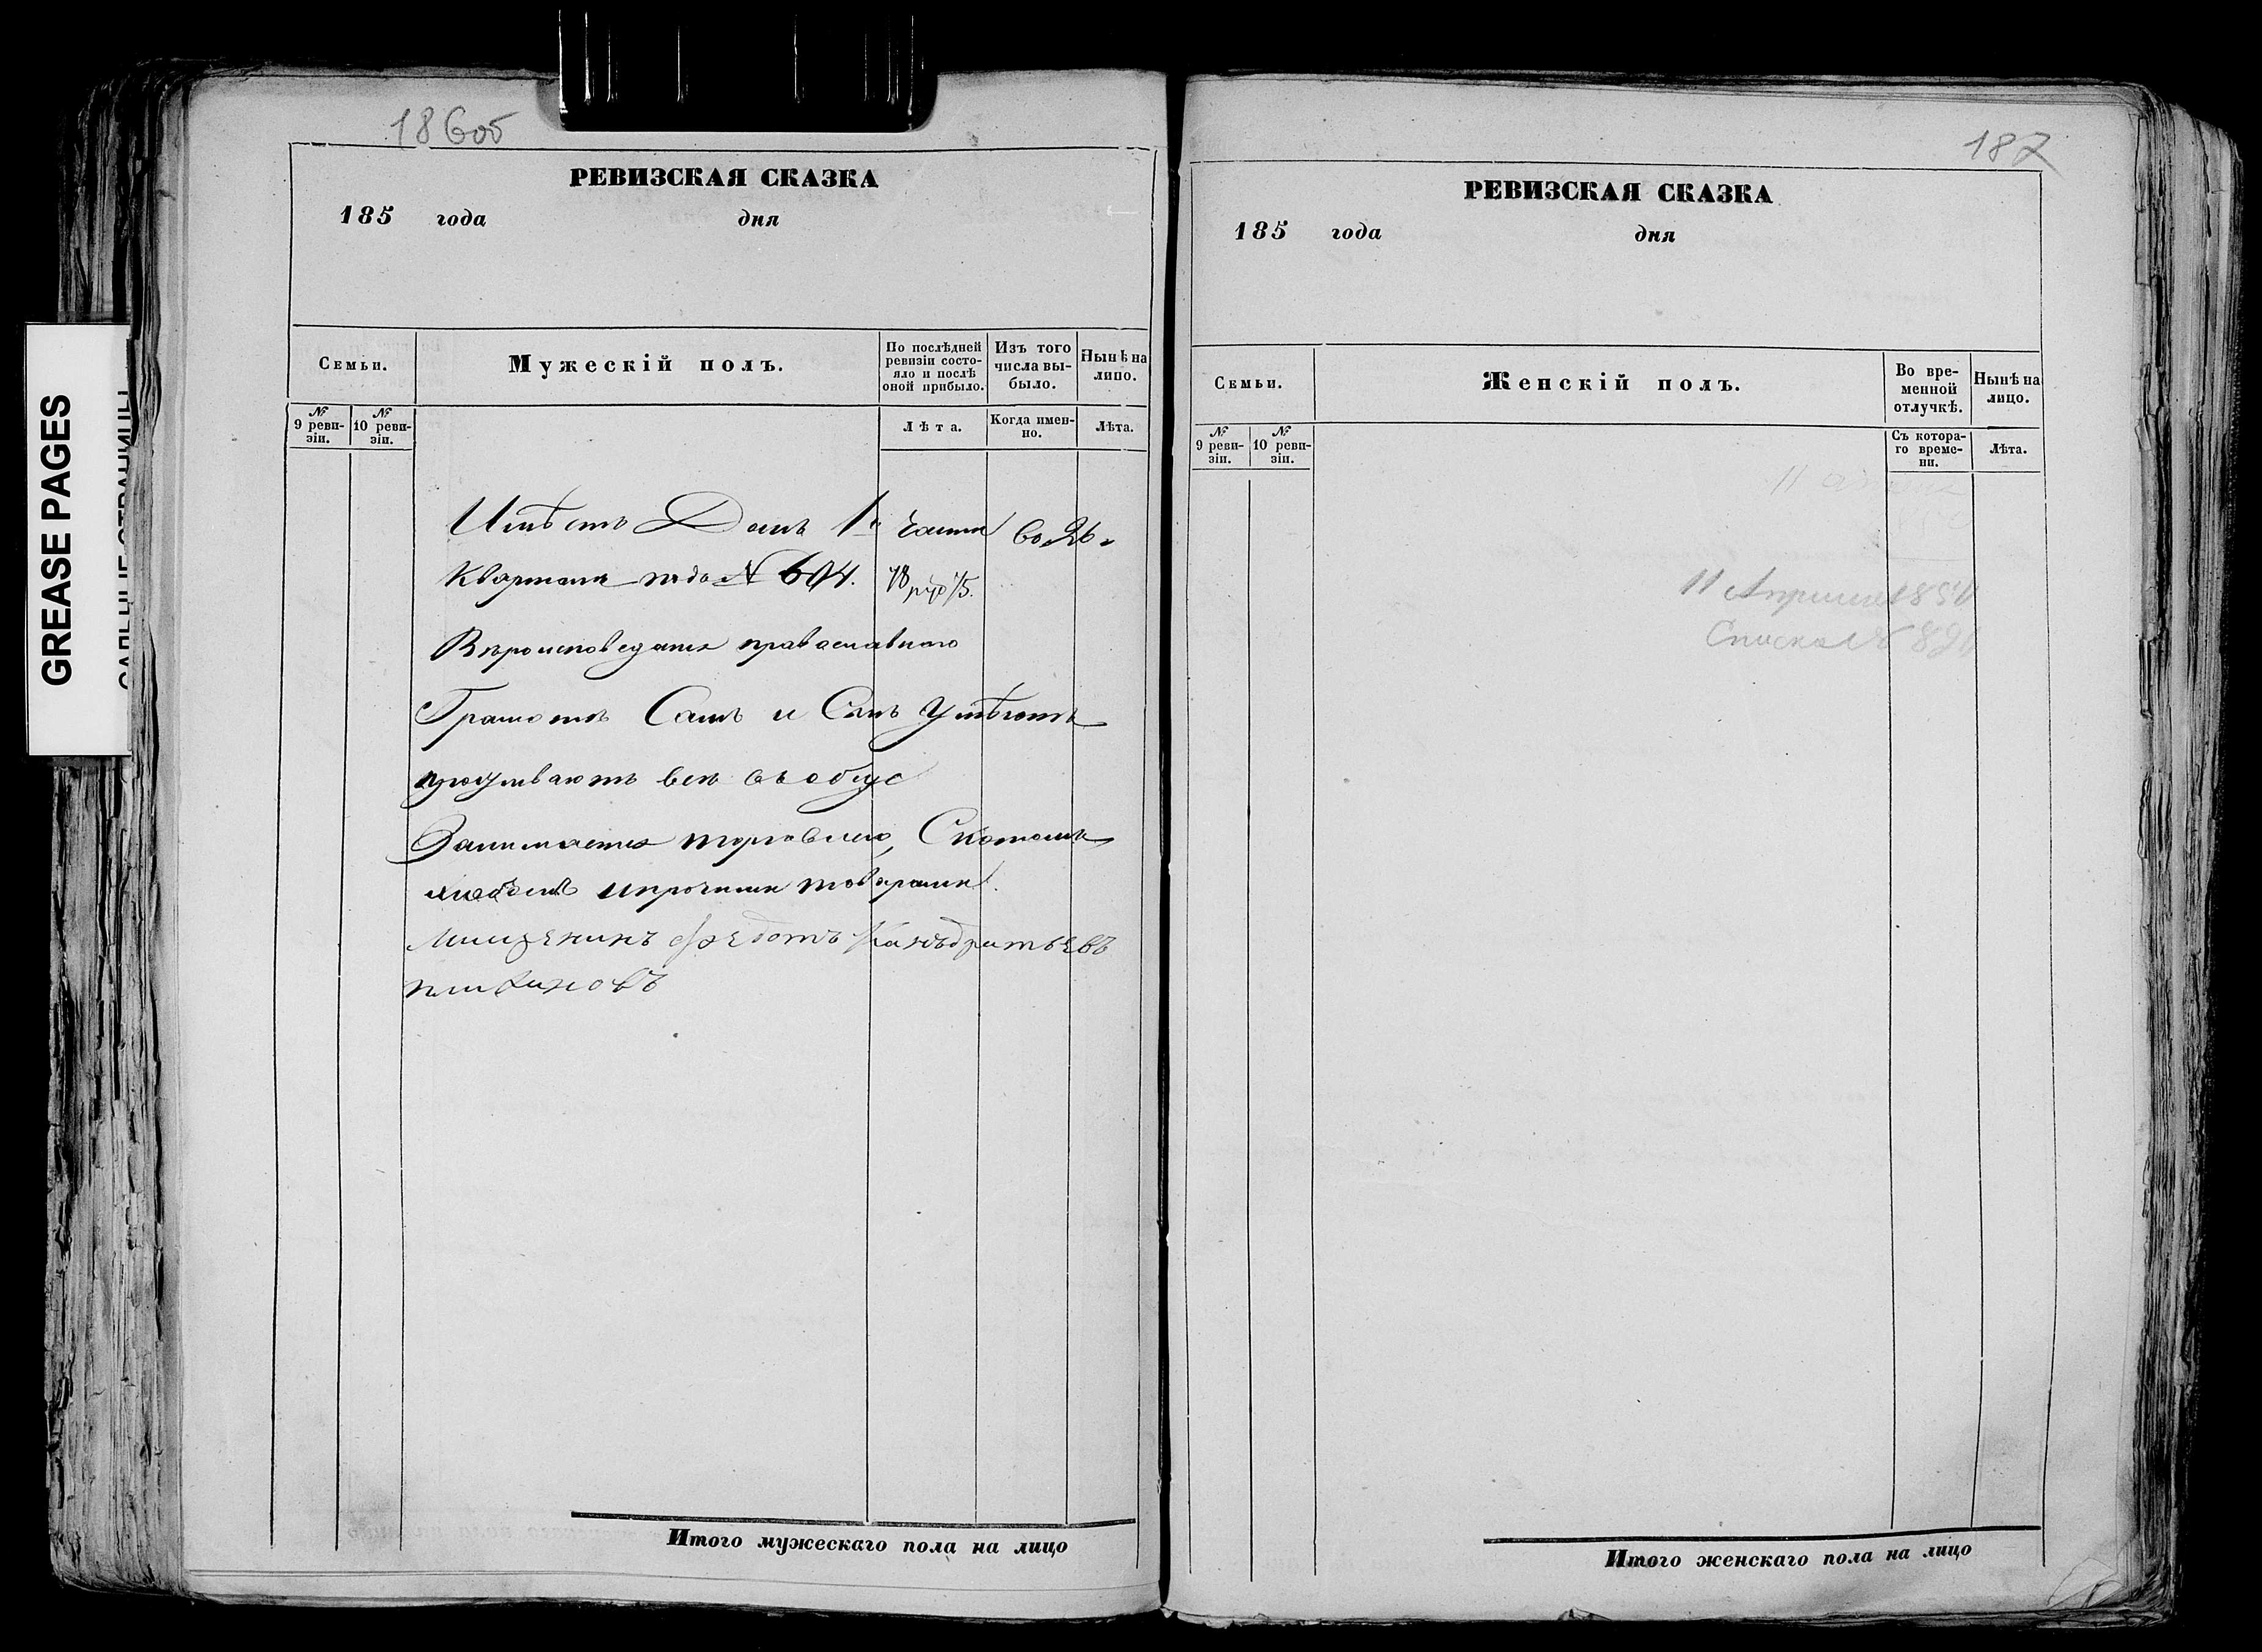 GREASE PAGES
186об
РЕВИЗСКАЯ СКАЗКА
185 года дня
Семьи.
Мужескій полъ.
По послѣдней ревизіи состояло и послѣ оной прибыло.
Изъ того числа выбыло.
Нынѣ на лицо.
№ 9 ревизіи.
№ 10 ревизіи.
Лѣта.
Когда именно.
Лѣта.
Имѣетъ Домъ 1й Части во 2мъ
Кварталѣ подъ № 694.
Вѣроисповеданія православнаго
Грамотѣ Самъ и Сынъ Умѣютъ
всѣ
Занимается торговлею, Скотомъ
хлѣбомъ и прочими товарами.
Мищенинъ Федотъ Канъдратьевъ
Итого мужескаго пола на лицо
187
РЕВИЗСКАЯ СКАЗКА
185 года дня
Семьи.
Женскій полъ.
Во временной отлучкѣ.
Нынѣ на лицо.
№ 9 ревизіи.
№ 10 ревизіи.
Съ котораго времени.
Лѣта.
11 Апрѣля
Итого женскаго пола на лицо